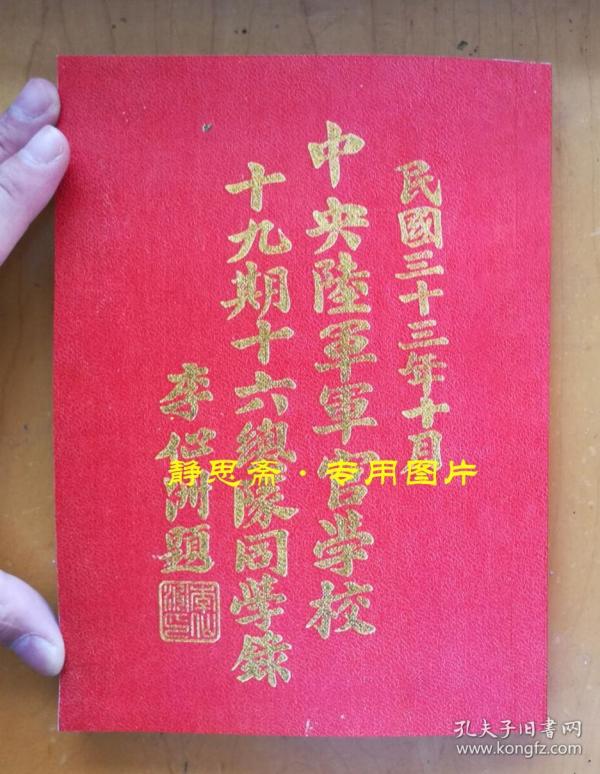 民國三十三年十月
中央陸軍軍官学校
十九期十六總隊同学錄
李仙洲題
李仙洲印
静思斋·专用图片
孔夫子旧书网
www.kongfz.com